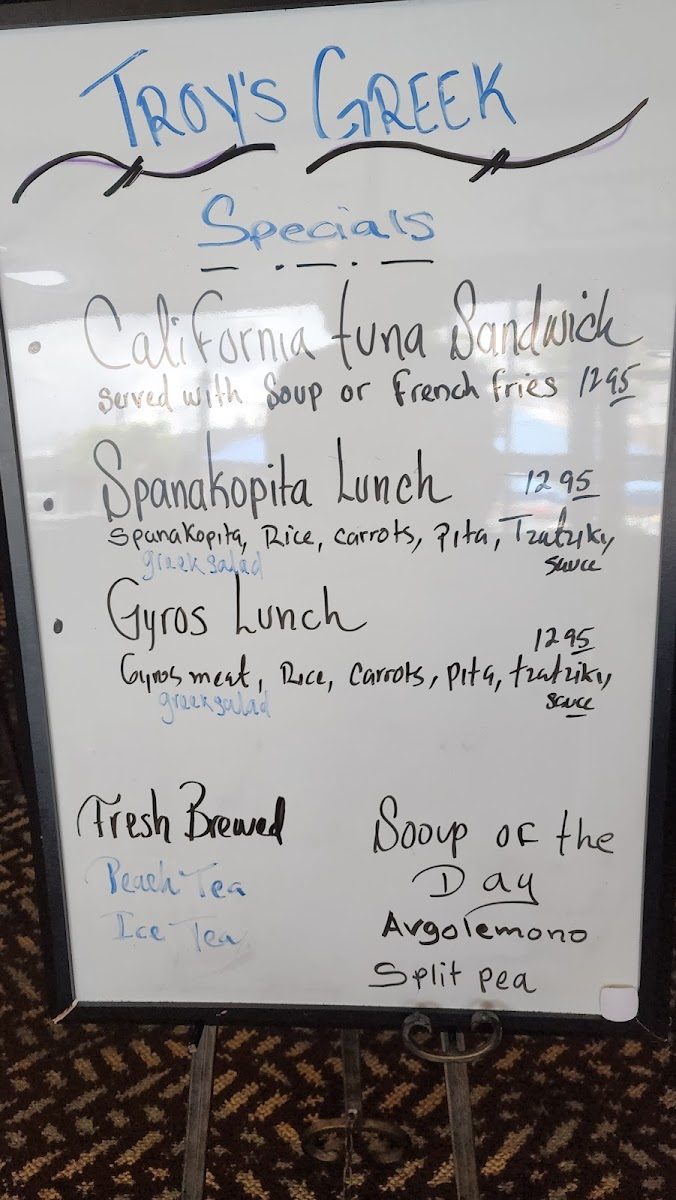 TROY'S GREEK
Specials
• California tuna Sandwich
Served with Soup or French fries 12 95
• Spanakopita Lunch 12 95
Spanakopita, Rice, carrots, Pita, Tzatziky
greek salad sauce
• Gyros Lunch
12 95
Gyros meat, Rice, Carrots, Pita, tzatziky
greek salad sauce
Fresh Brewed
Peach Tea
Ice Tea
Sooup of the
Day
Avgolemono
Split pea